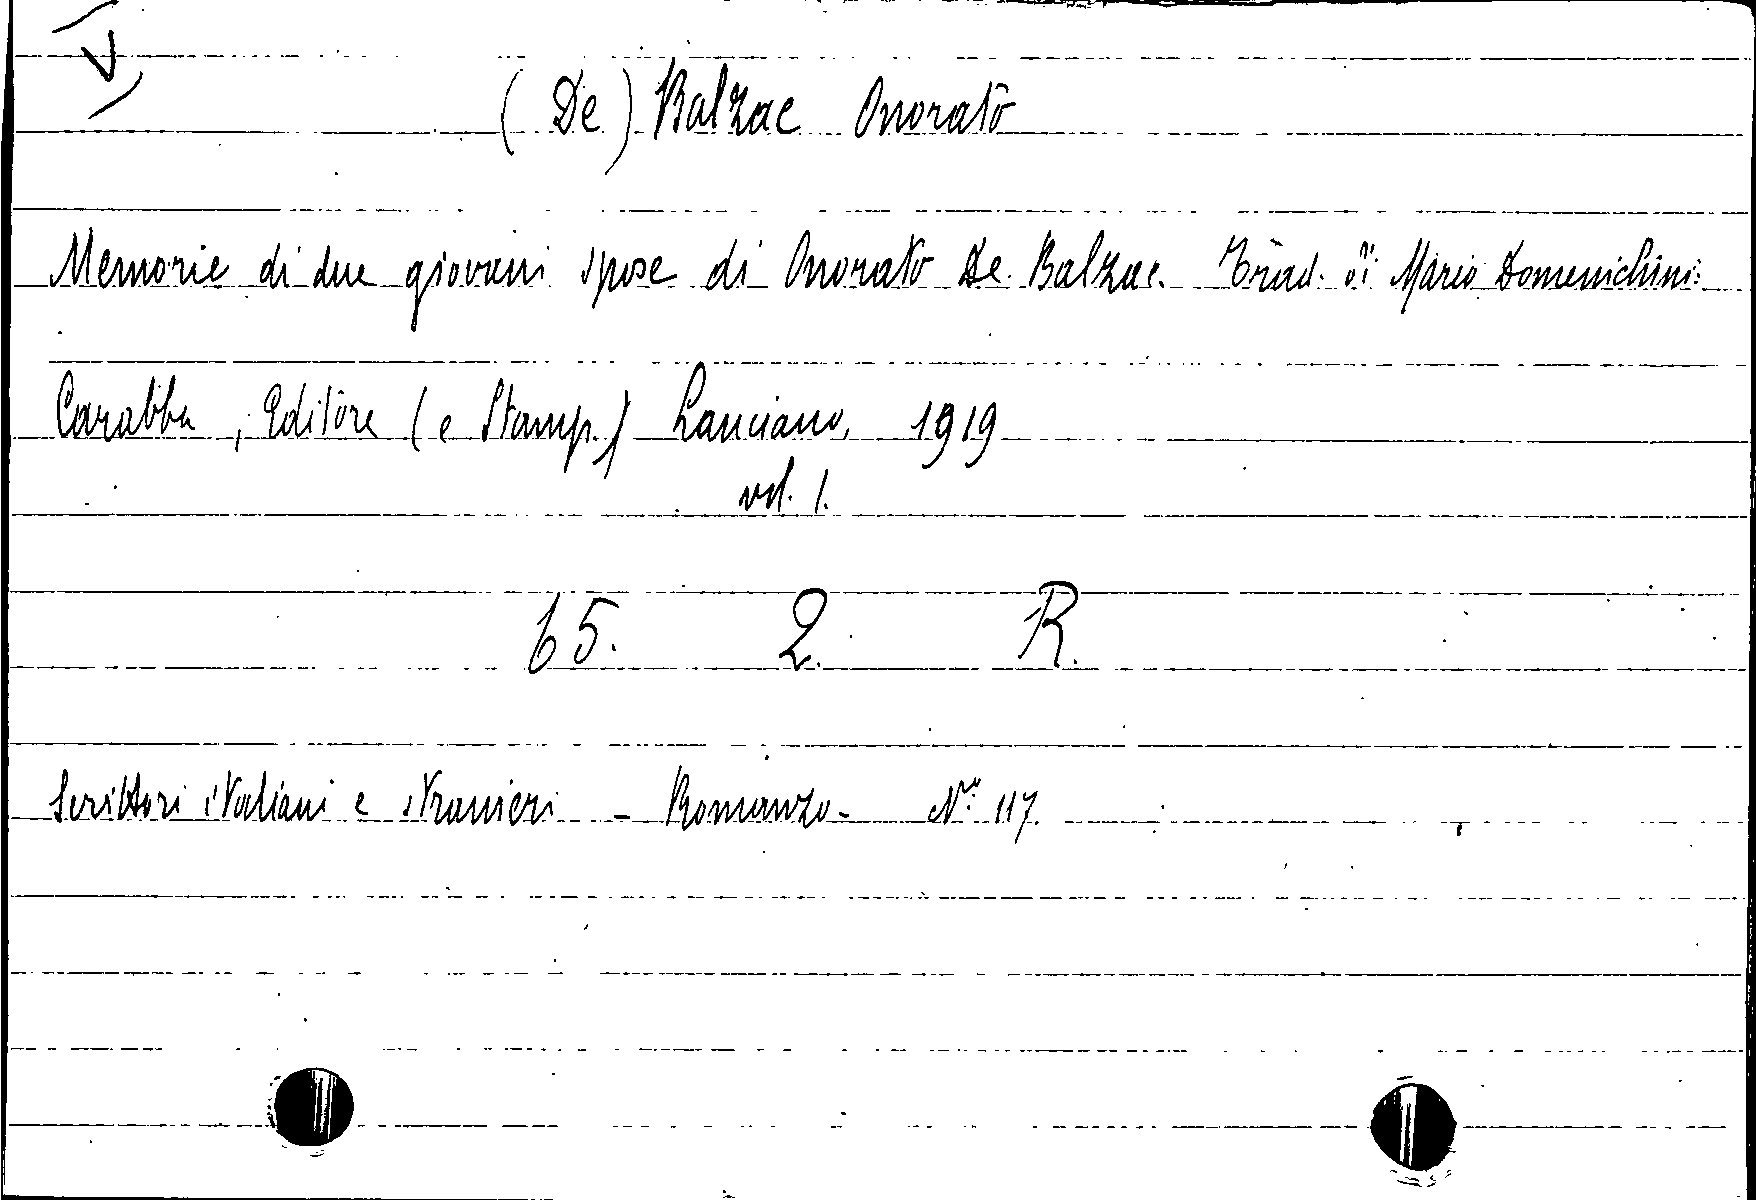 (De) Balzac Onorato
Memorie di due giovani spose di Onorato De Balzac. Trad. di Mario Domenichini.
Carabba, Editore (e Stamp.) Lanciano, 1919
vol. 1.
65. 2. R.
Scrittori italiani e stranieri - Romanzo - N.° 117.